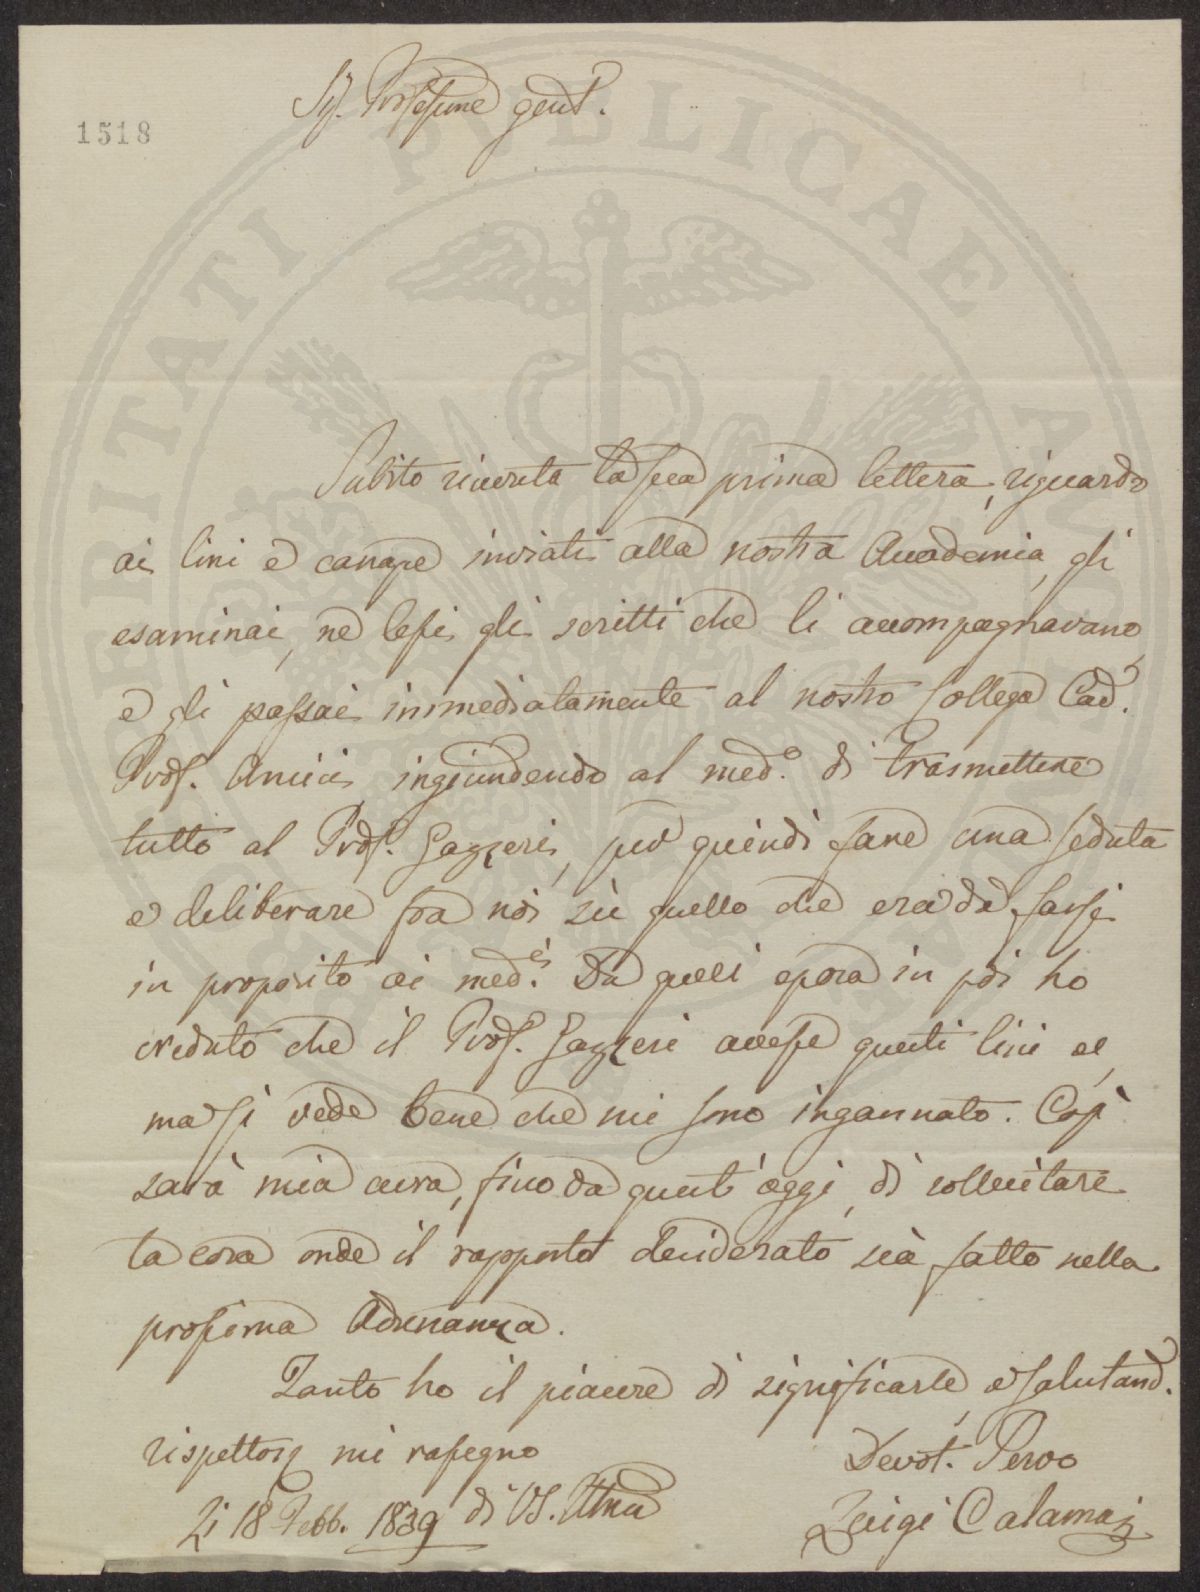 Sig. Professore gent.
1518
PROSPERITATI PUBLICAE AUGENDAE
Subito ricevuta la sua prima lettera, riguardo
ai lini e canape inviati alla nostra Accademia, gli
esaminai, ne lessi gli scritti che li accompagnavano,
e gli passai immediatamente al nostro Collega Cad.
Prof. Amici, ingiundendo al med.o di trasmettere
tutto al Prof. Gazzeri, per quindi fare una seduta
e deliberare fra noi sù quello che era da farsi
in proposito ai med.i Da quell'epoca in poi ho
creduto che il Prof. Gazzeri avesse questi lini ec,
ma si vede bene che mi sono ingannato. Così
sarà mia cura, fino da quest'oggi, di sollecitare
la cosa onde il rapporto desiderato sia fatto nella
prossima Adunanza.
Tanto ho il piacere di significarle, e salutand.
rispettos mi rassegno
Li 18 Febb. 1839 di VS. Illma
Devot. Servo
Luigi Calamai